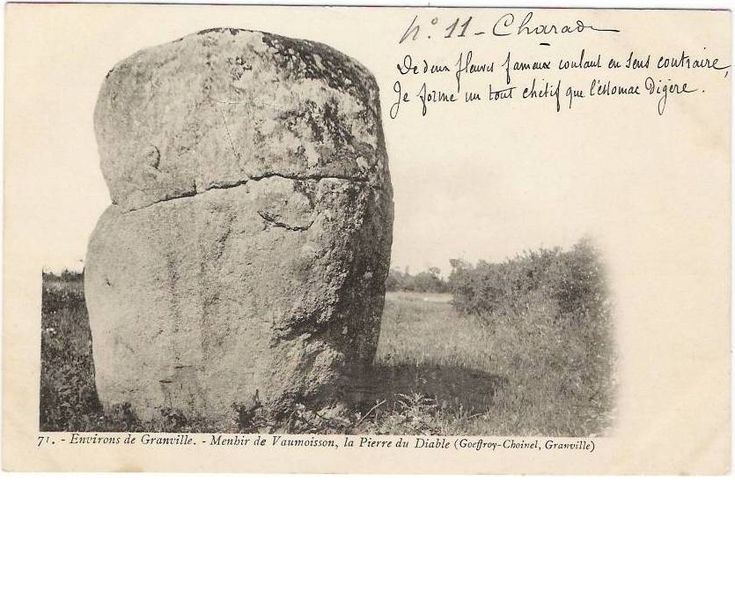 N° 11 - Charade
De deux fleuves fameux coulant en sens contraire,
Je forme un tout chétif que l'estomac digère.
71. - Environs de Granville. - Menhir de Vaumoisson, la Pierre du Diable (Goeffroy-Choinel, Granville)